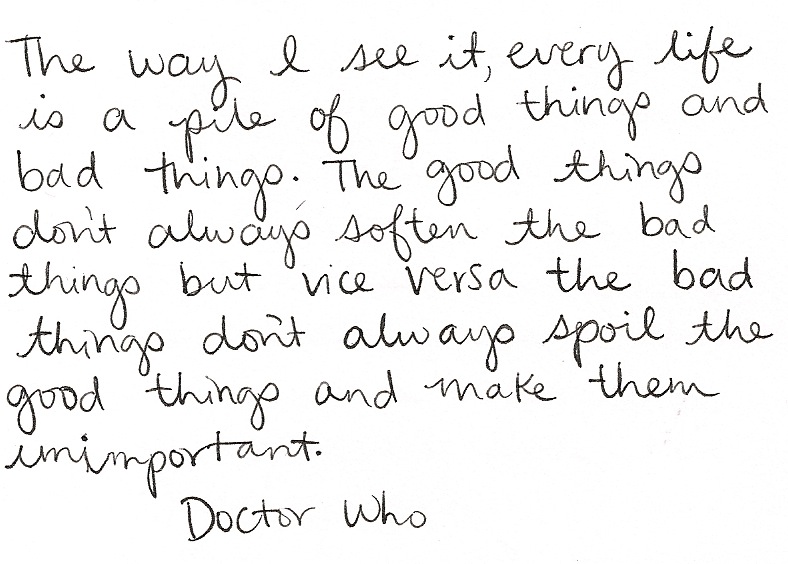 The way I see it, every life
is a pile of good things and
bad things. The good things
don't always soften the bad
things but vice versa the bad
things don't always spoil the
good things and make them
unimportant.
Doctor Who